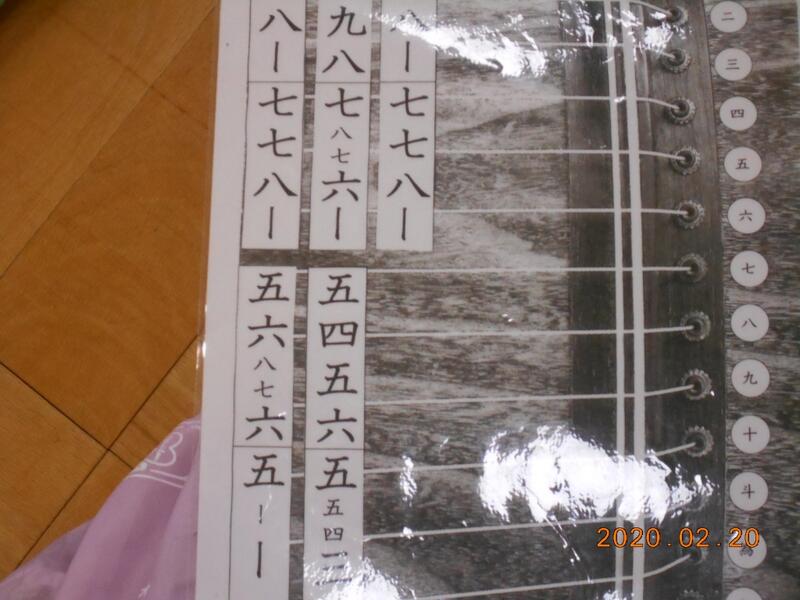 八ー七七八ー
九八七八七六ー
八ー七七八ー
五四五六五五四三
五六八七六五ーー
二
三
四
五
六
七
八
九
十
斗
為
2020.02.20